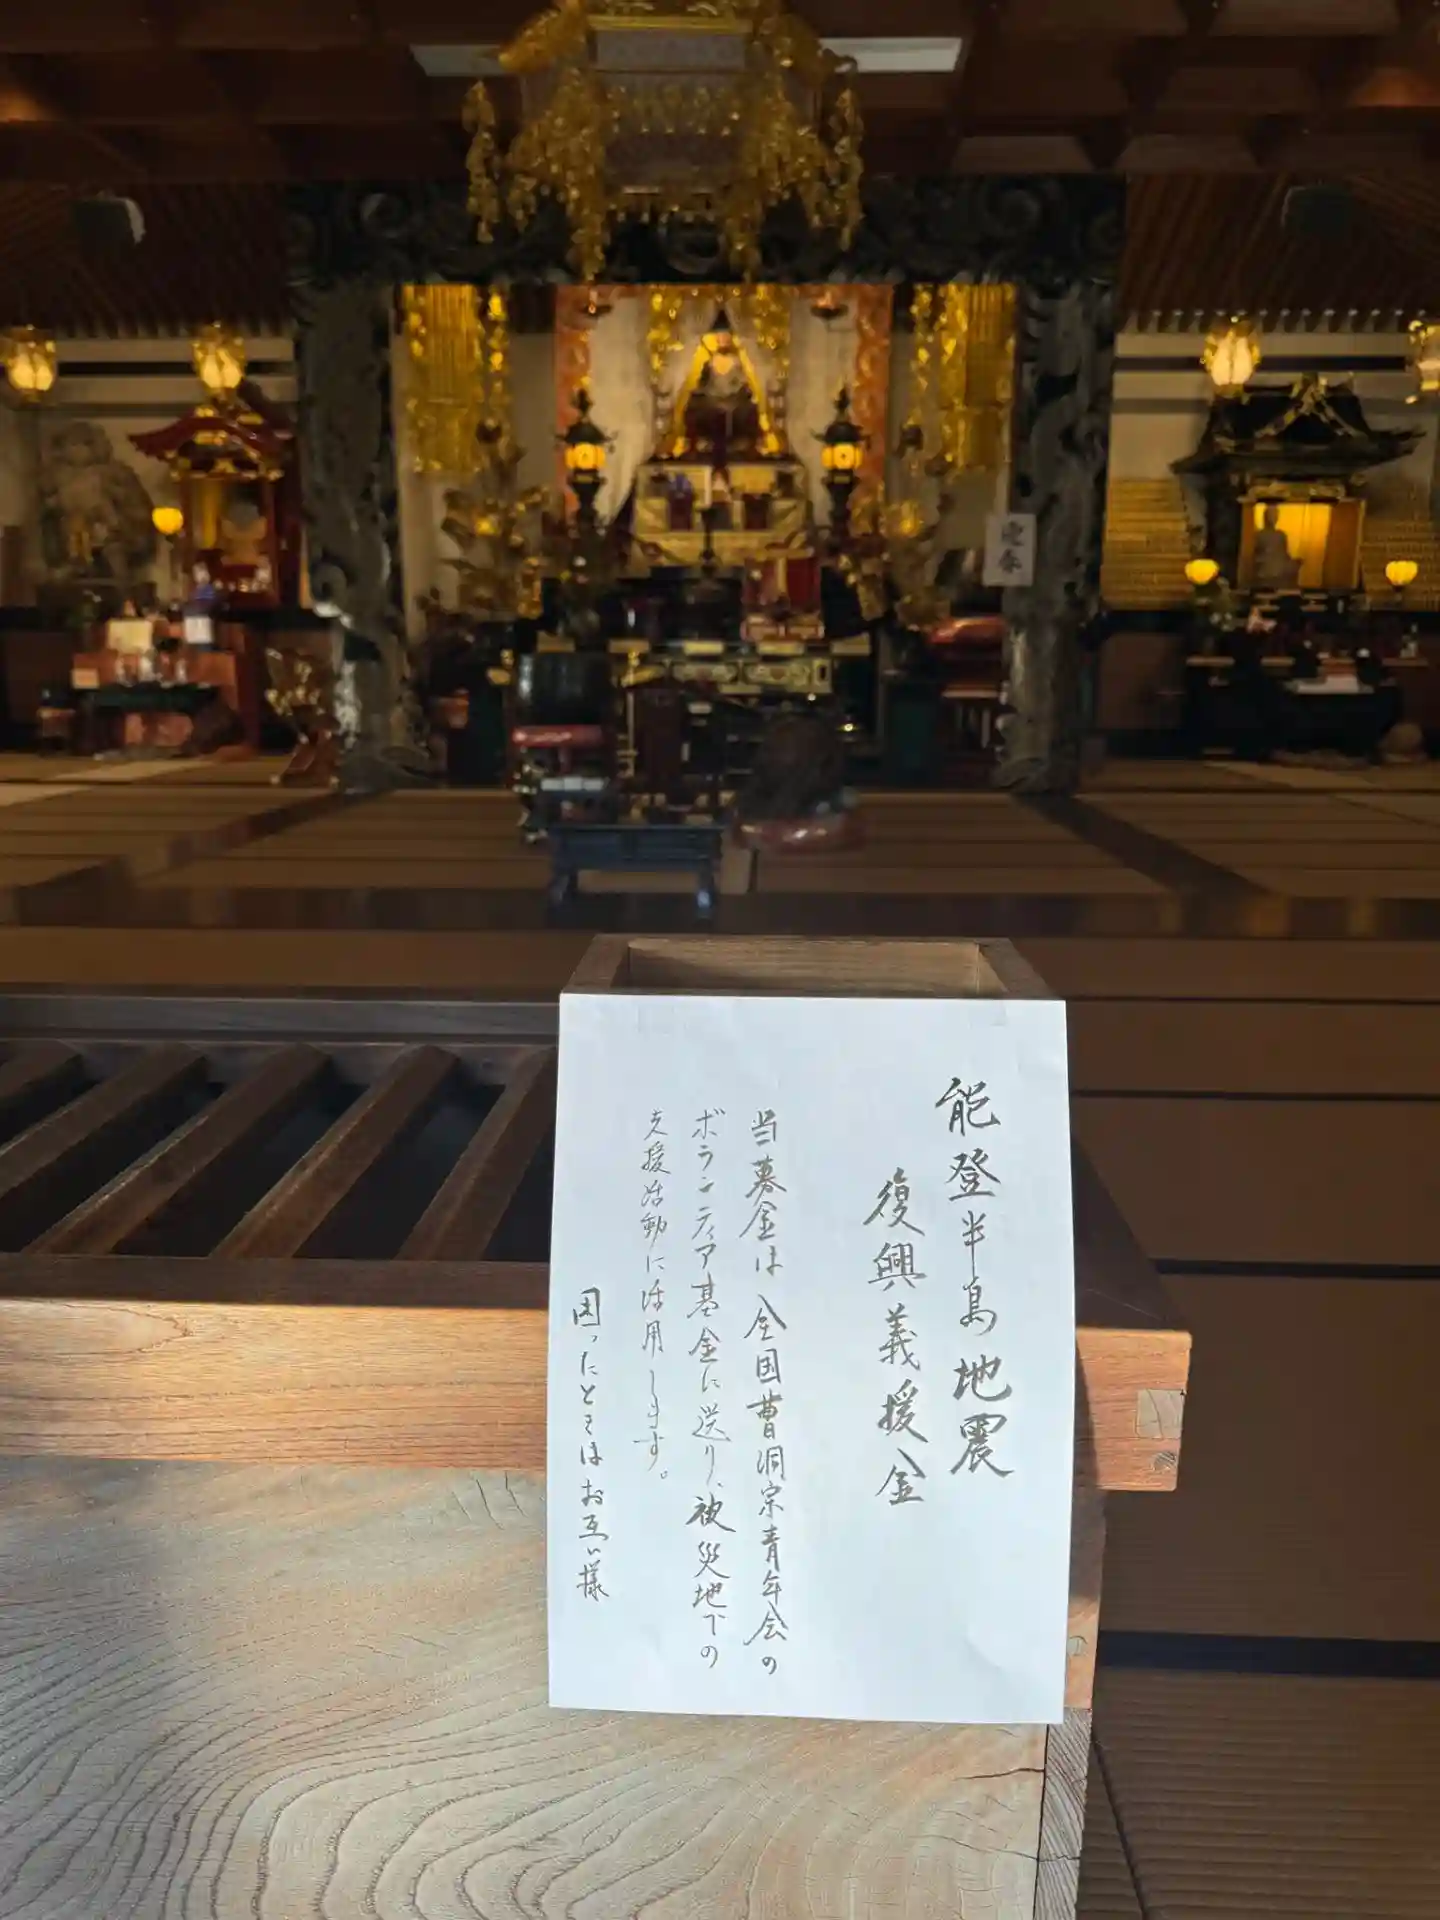 能登半島地震
復興義援金
当募金は全国曹洞宗青年会の
ボランティア基金に送り、被災地での
支援活動に活用します。
困ったときはお互い様
迎春